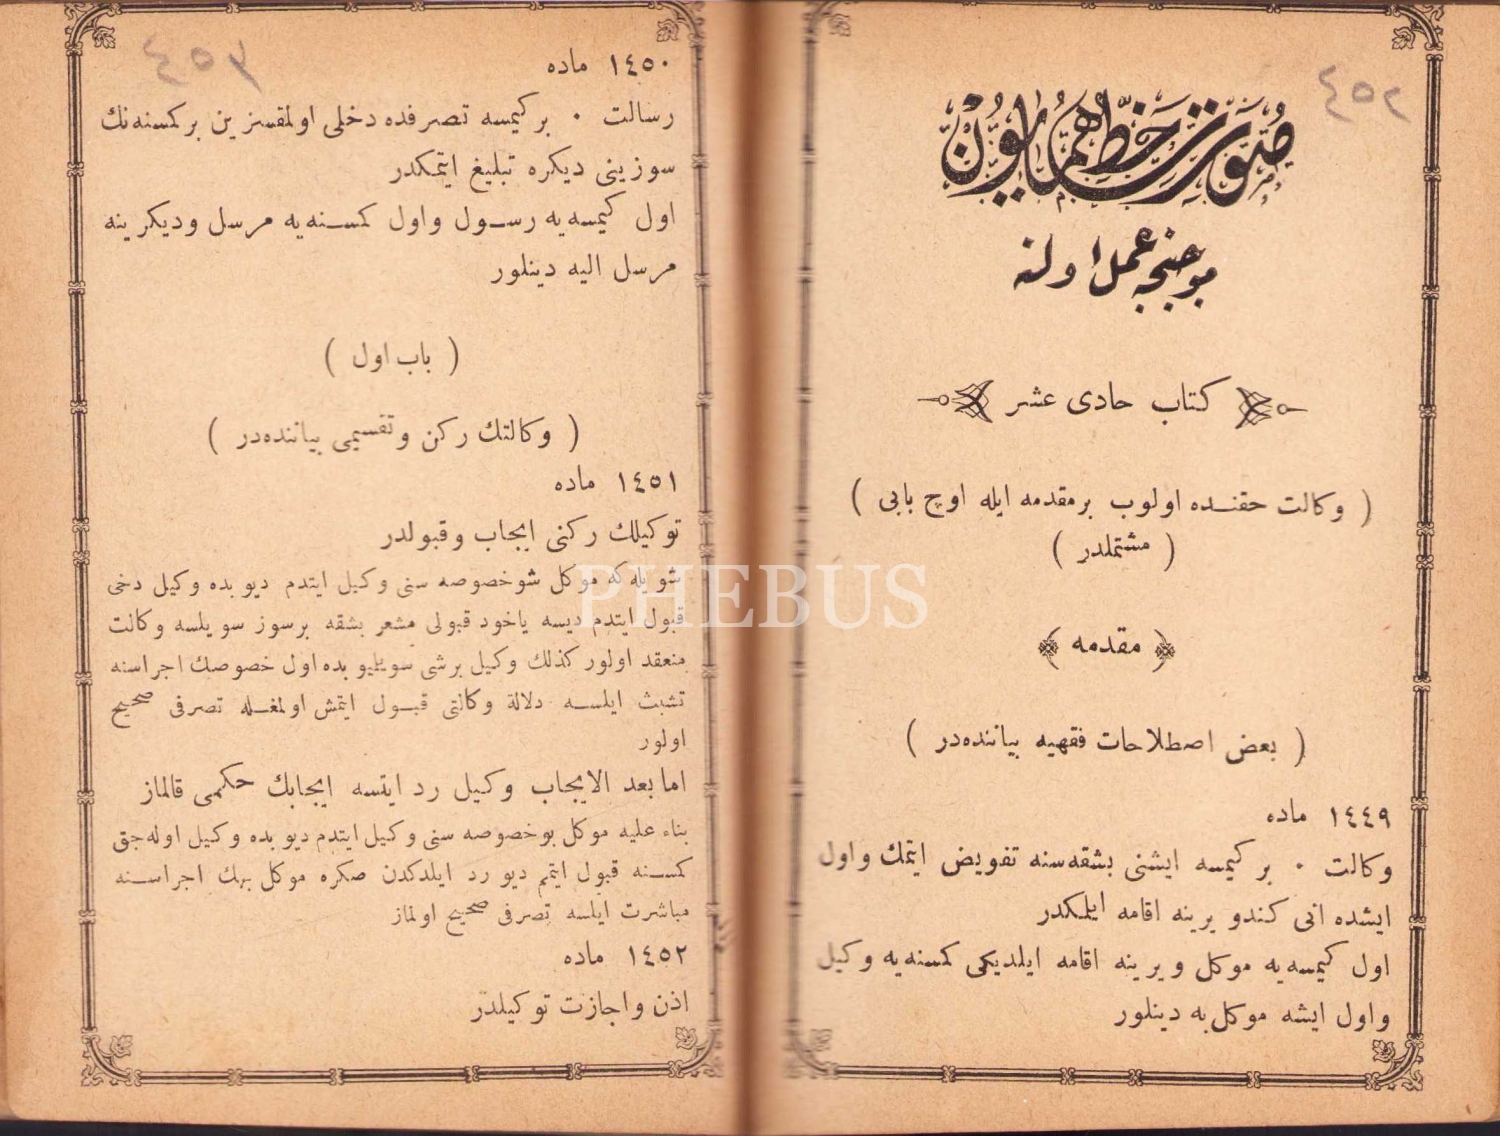 ٤٥٢
صورت خط همايون
موجبنجه عمل اولنه
كتاب حادى عشر
( وكالت حقنده اولوب برمقدمه ايله اوچ بابى )
( مشتملدر )
﴿ مقدمه ﴾
( بعض اصطلاحات فقهيه بياننده در )
١٤٤٩ ماده
وكالت ٠ بر كيمسه ايشنى بشقه سنه تفويض ايتمك واول
ايشده انى كندو يرينه اقامه ايلمكدر
اول كيمسه يه موكل ويرينه اقامه ايلديكى كمسنه يه وكيل
واول ايشه موكل به دينلور
٤٥٣
١٤٥٠ ماده
رسالت ٠ بر كيمسه تصرفده دخلى اولمقسزين بركمسنه نك
سوزينى ديكره تبليغ ايتمكدر
اول كيمسه يه رسول واول كمسنه يه مرسل وديكرينه
مرسل اليه دينلور
( باب اول )
( وكالتك ركن وتقسيمى بياننده در )
١٤٥١ ماده
توكيلك ركنى ايجاب وقبولدر
شويله كه موكل شو خصوصه سنى وكيل ايتدم ديوبده وكيل دخى
قبول ايتدم ديسه ياخود قبولى مشعر بشقه برسوز سويلسه وكالت
منعقد اولور كذلك وكيل برشى سويليوبده اول خصوصك اجراسنه
تشبث ايلسه دلالة وكالتى قبول ايتمش اولمغله تصرفى صحيح
اولور
اما بعد الايجاب وكيل رد ايتسه ايجابك حكمى قالماز
بناء عليه موكل بوخصوصه سنى وكيل ايتدم ديوبده وكيل اوله جق
كمسنه قبول ايتمم ديو رد ايلدكدن صكره موكل بهك اجراسنه
مباشرت ايلسه تصرفى صحيح اولماز
١٤٥٢ ماده
اذن واجازت توكيلدر
PHEBUS